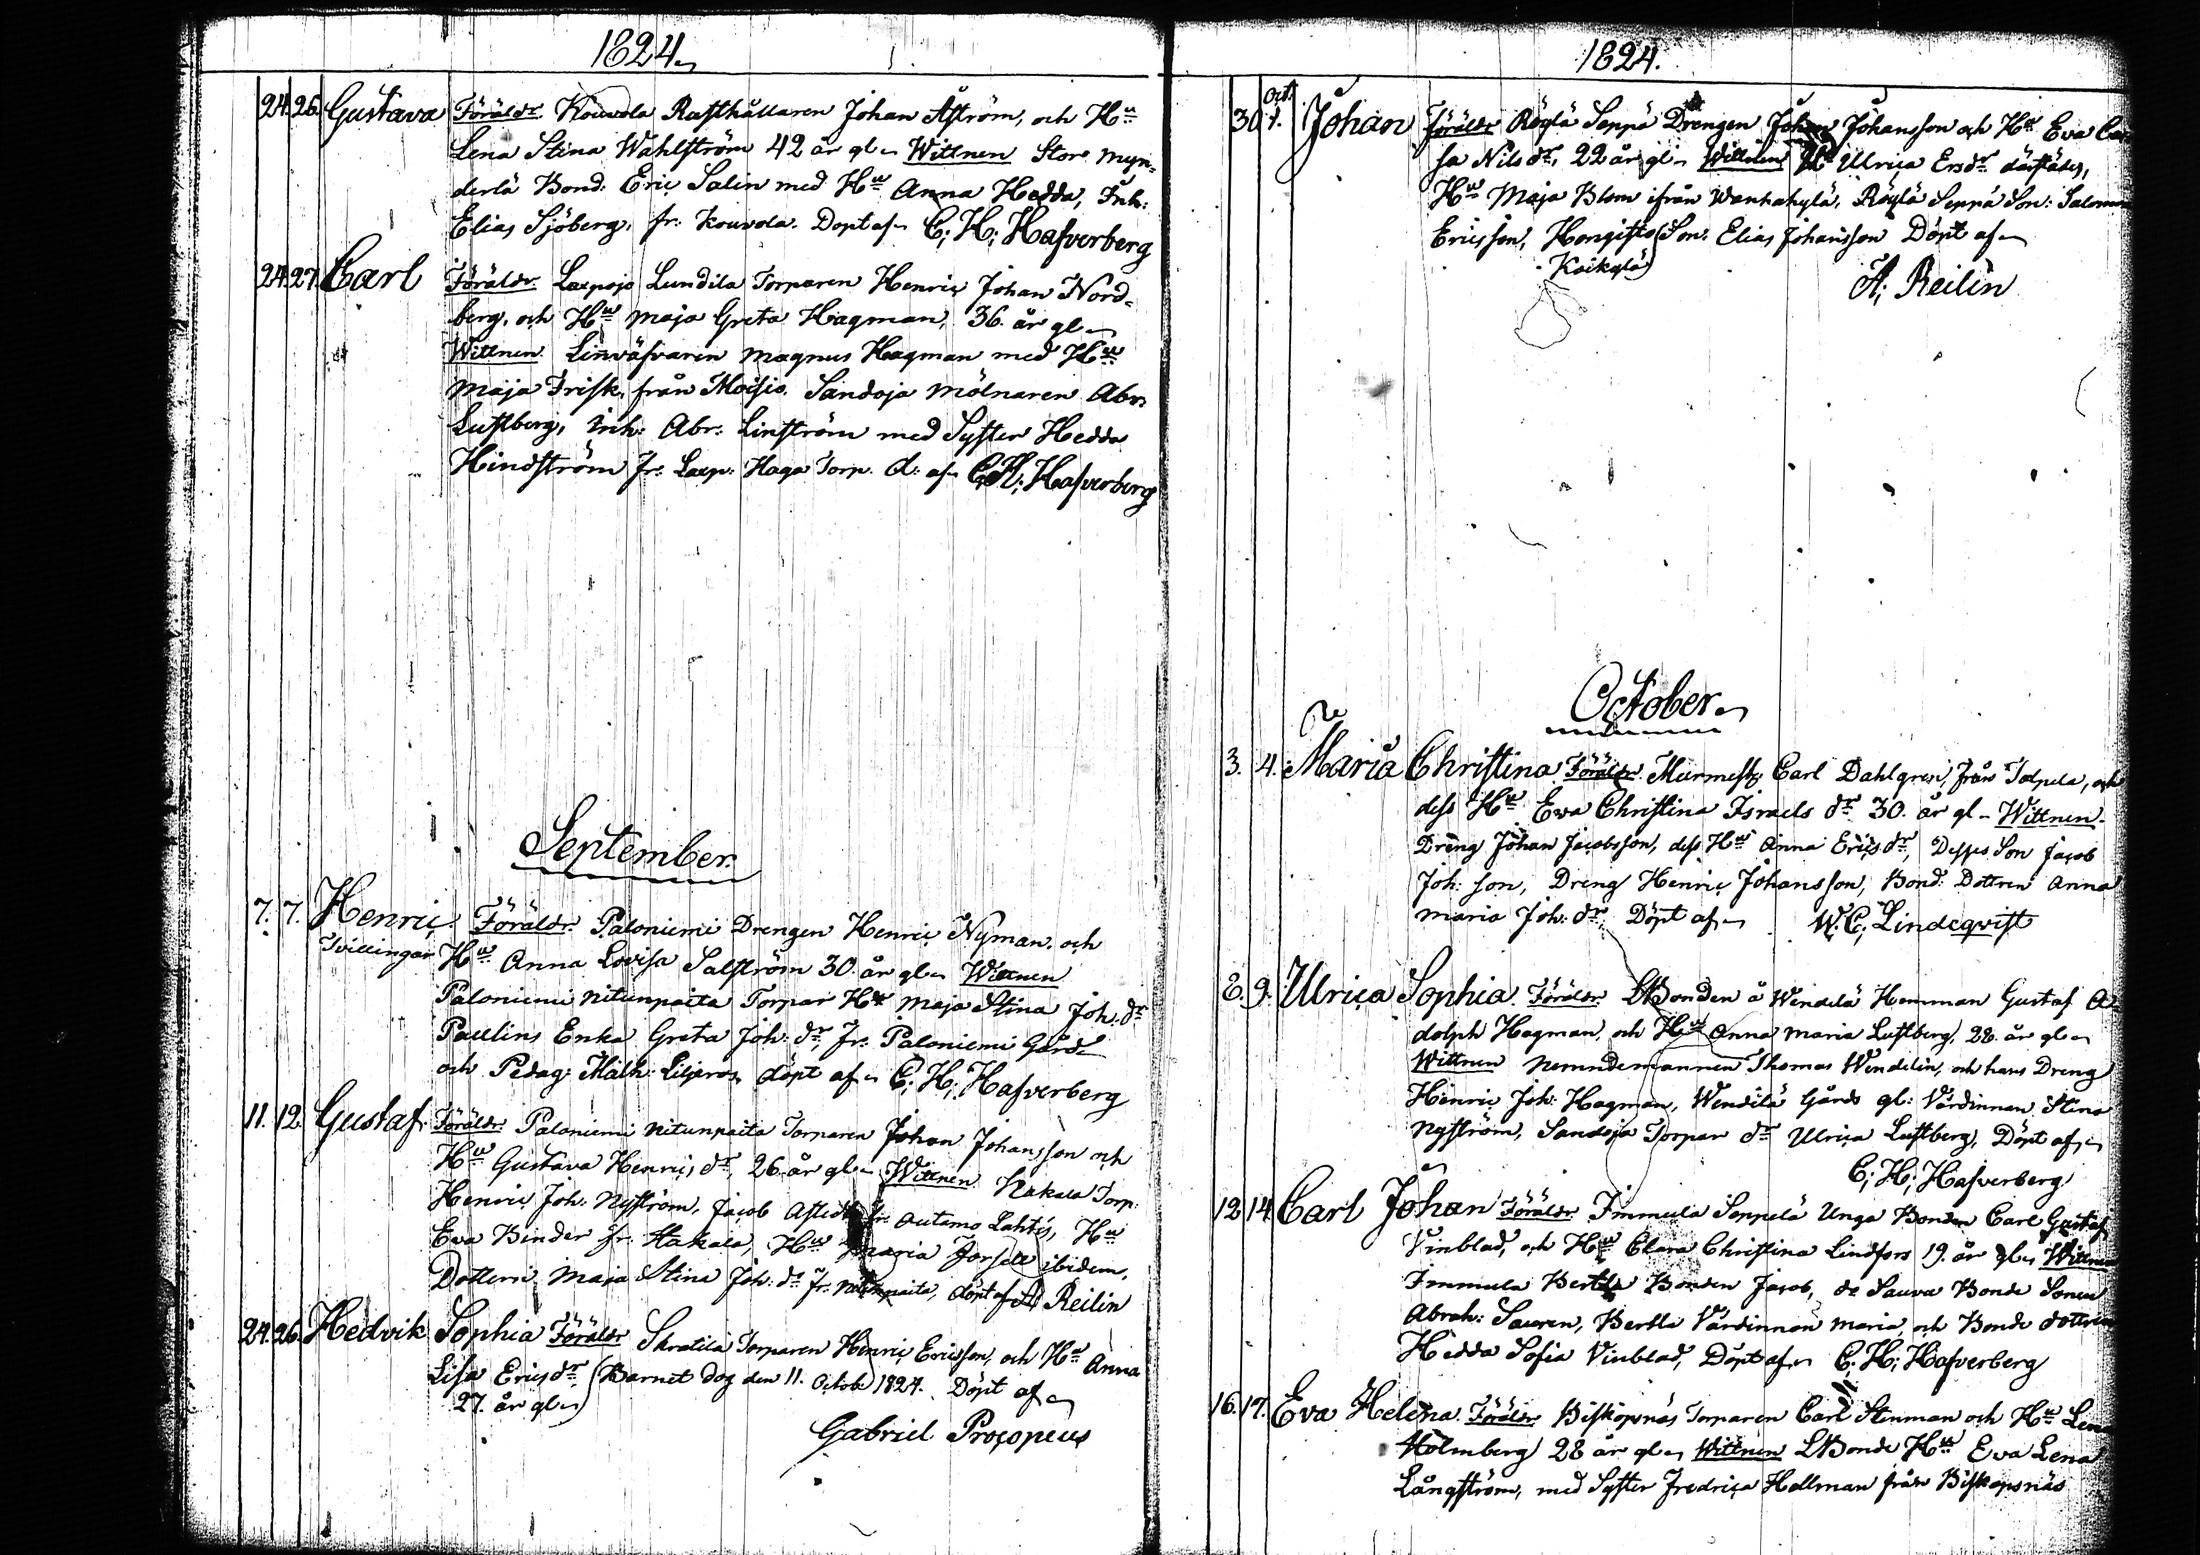 1824.
24. 26. Gustava Föräldr. Kouvola Rusthållaren Johan Åström, och Hu
Lena Stina Wahlström 42 år gl. Wittnen Stor Myn-
derlä Bond. Eric Salin med Hu Anna Hedda, Inh:
Elias Sjöberg, fr. Kouvola. Döpt af C: H: Hafverberg
24. 27. Carl Föräldr. Laxpojo Lundila Torparen Henric Johan Nord-
berg, och Hu Maja Greta Hagman, 36. år gl.
Wittnen Linväfvaren Magnus Hagman med Hu
Maja Frisk, från Moisio. Sandoja Mölnaren Abr:
Luftberg, Inh: Abr: Linström med Syster Hedda
Hindström fr. Laxp: Haga Torp. d: af C: H: Hafverberg
September.
7. 7. Henric Föräldr. Paloniemi Drengen Henric Nyman och
Tvillingar Hu Anna Lovisa Salström 30. år gl. Wittnen
Paloniemi Nitunpaita Torpar Hu Maja Stina Joh: dr
Paulins Enka Greta Joh: dr, fr. Paloniemi Gård
och Pedag: Math: Liljeros, döpt af C: H: Hafverberg
11. 12. Gustaf Föräldr. Paloniemi Nitunpaita Torparen Johan Johansson och
Hu Gustava Henrics dr, 26 år gl. Wittnen Hakala Torp:
Henric Joh: Nyström, Jacob fr. Outamo Lahtis, Hu
Eva Binder fr. Hakala, Hu Maria Forsell ibidem,
Dottern Maja Stina Joh: dr fr. Nitunpaita, döpt af A: Reilin
24. 26. Hedvik Sophia Föräldr Skratila Torparen Henric Ericsson, och Hu Anna
Lisa Erics dr, (Barnet dog den 11. Octob 1824. Döpt af
27. år gl.)
Gabriel Procopeus
1824.
Oct.
30. 1. Johan Föräldr Röylä Seppä Drengen Johan Johansson och Hu Eva Cai
sa Nils dr, 22 år gl. Wittnen Hu Ulrica Ersdr därstädes,
Hu Maja Blom ifrån Wanhakylä, Röylä Seppä Son: Salomon
Ericsson, Hongisto (Son: Elias Johansson Döpt af
Koikylä)
A: Reilin
October.
3. 4. Maria Christina Föräldr. Murmest: Carl Dahlgren, från Tolpela, och
dess Hu Eva Christina Israels dr 30. år gl. Wittnen.
Dreng Johan Jacobsson, dess Hu Anna Erics dr, Desses Son Jacob
Joh: son, Dreng Henric Johansson, Bond: Dottren Anna
Maria Joh: dr, Döpt af W. C. Lindeqvist
8. 9. Ulrica Sophia. Föräldr. LBonden å Wendelä Hemman Gustaf A-
dolph Hagman, och Hu Anna Maria Luftberg, 28. år gl.
Wittnen Nemndemannen Thomas Wendelin, och hans Dreng
Henric Joh: Hagman, Wendilä Gårds gl: Värdinnan Stina
Nyström, Sandoja Torpar dr Ulrica Luftberg, Döpt af
C: H: Hafverberg
12. 14. Carl Johan Föräldr. Immula Seppelä Unga Bonden Carl Gustaf
Vinblad, och Hu Clara Christina Lindfors 19. år gl. Wittnen
Immula Bertila Bonden Jacob, de Sauva Bonde Sonen
Abrah: Sauren, Bertla Värdinnan Maria, och Bonde dottren
Hedda Sofia Vinblad, Döpt af C: H: Hafverberg
16. 17. Eva Helena. Föräldr. Biskopsnäs Torparen Carl Stenman och Hu Lena
Holmberg 28 år gl. Wittnen LBonde Hu Eva Lena
Långström, med Syster Fredrica Hallman från Biskopsnäs